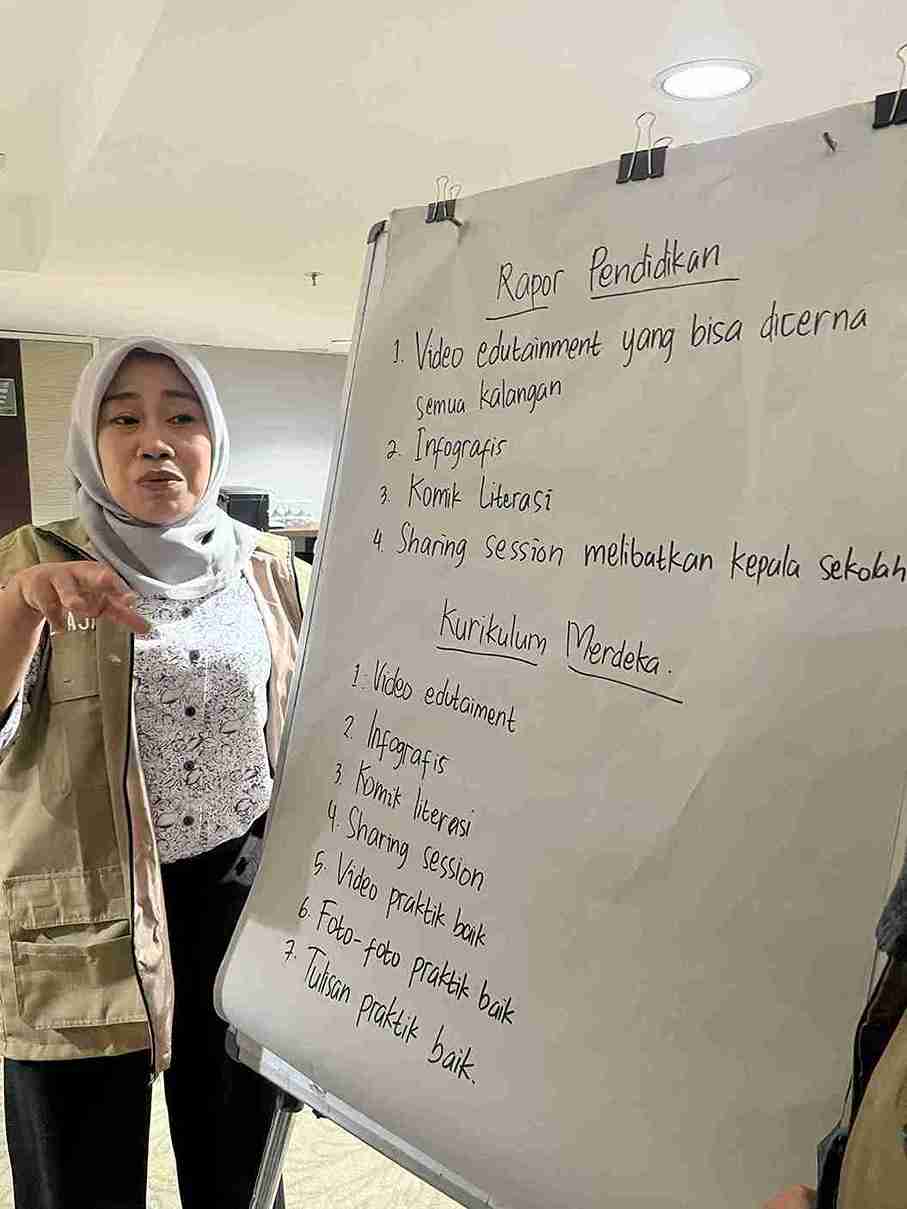 Rapor Pendidikan
1. Video edutainment yang bisa dicerna
semua kalangan
2. Infografis
3. Komik Literasi
4. Sharing session melibatkan kepala sekolah
Kurikulum Merdeka.
1. Video edutaiment
2. Infografis
3. Komik literasi
4. Sharing session
5. Video praktik baik
6. Foto-foto praktik baik
7. Tulisan praktik baik.